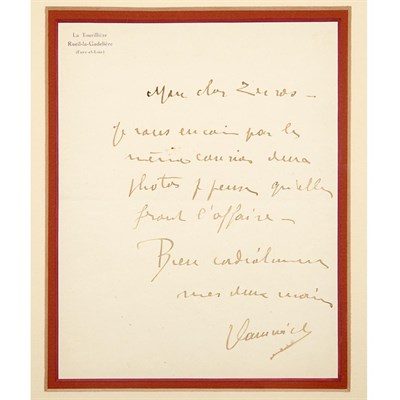 La Tourillière
Rueil-la-Gadelière
Eure-et-Loir
Mon cher Zervos –
Je vous envoie par le
même courrier deux
photos je pense qu'elles
feront l'affaire –
Bien cordialement
mes deux mains
Vlaminck